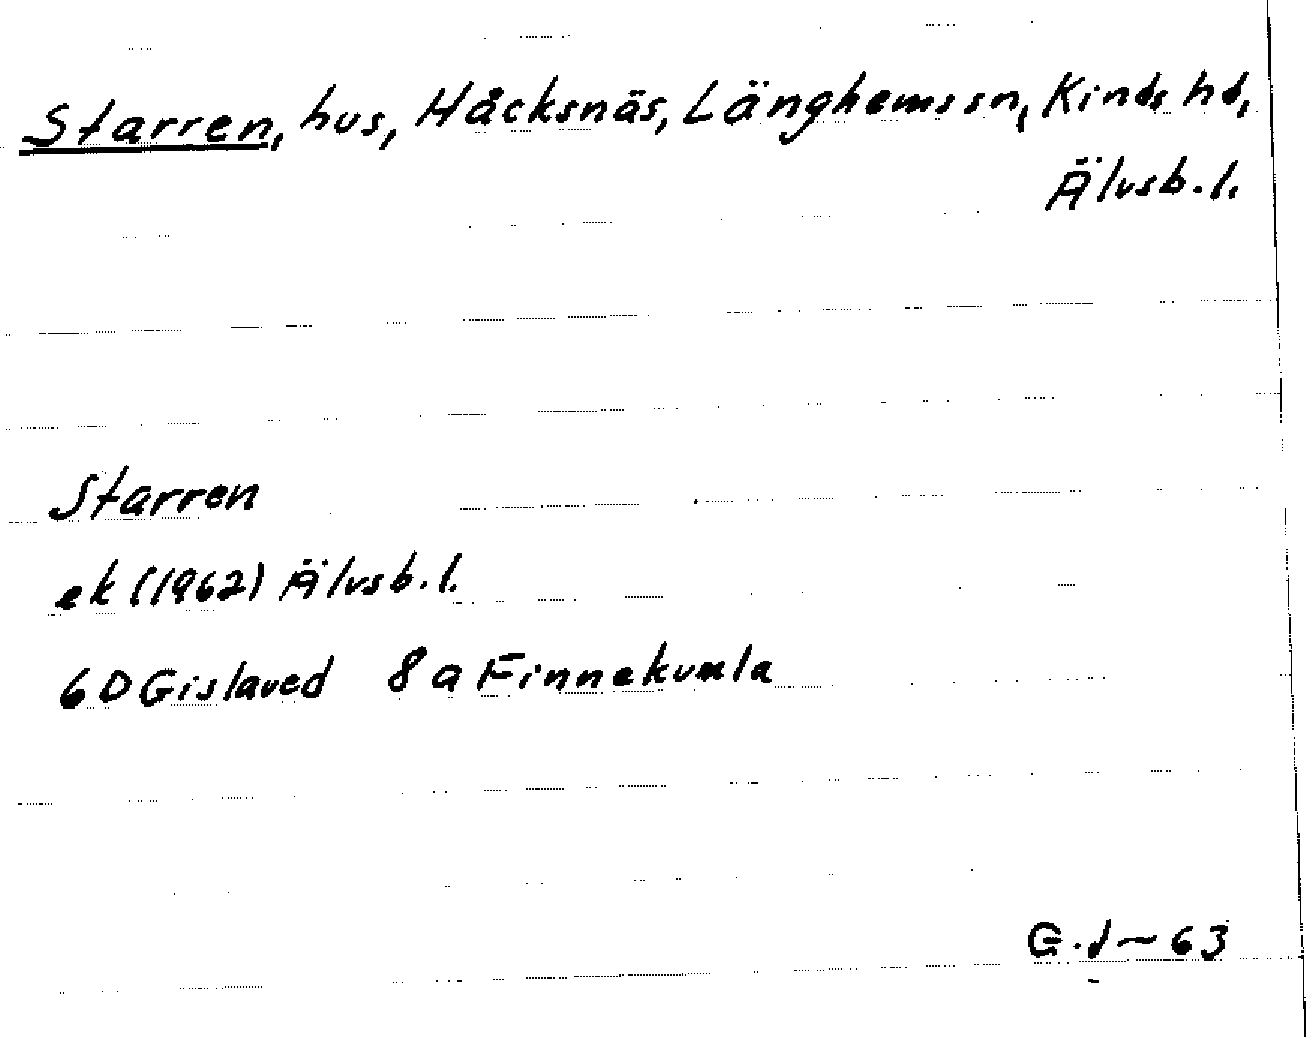 Starren, hus, Håcksnäs, Länghems sn, Kinds hd,
Älvsb. l.
Starren
ek (1962) Älvsb. l.
6D Gislaved 8a Finnekumla
G. J ~ 63